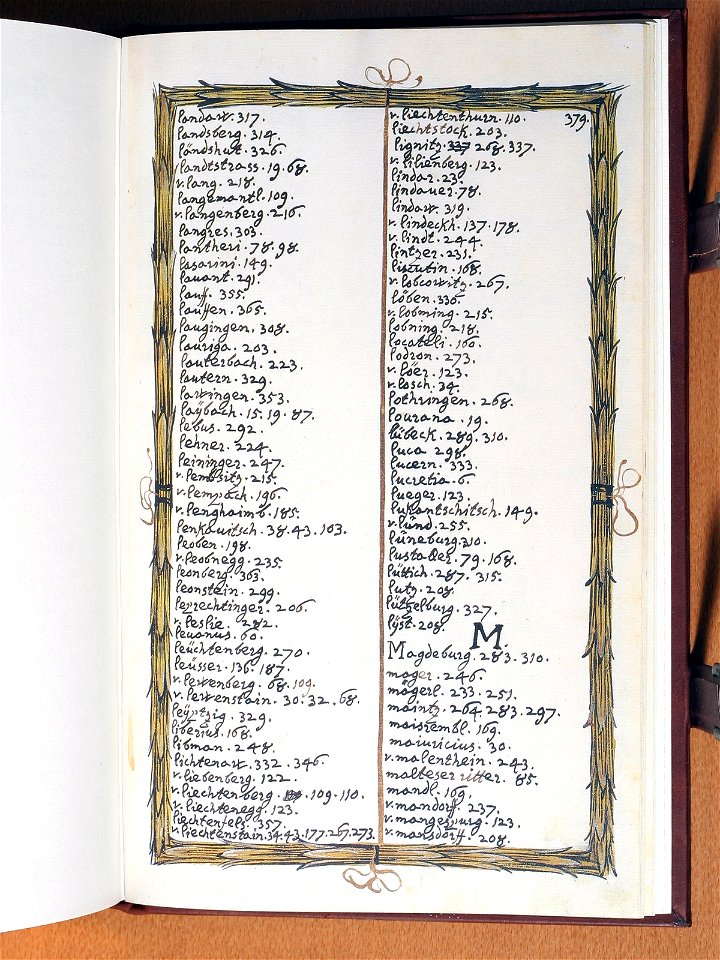 Landaw. 317.
Landsberg. 314.
Landshut. 326.
Landtstrass. 19. 68.
v. Lang. 218.
Langemantl. 109.
v. Langenberg. 216.
Langres. 303.
Lantheri. 78. 98.
Lasarini. 149.
Lauant. 291.
Lauff. 355.
Lauffen. 365.
Laugingen. 308.
Lauriga. 203.
Lauterbach. 223.
Lautern. 329.
Lawingen. 353.
Laÿbach. 15. 19. 87.
Lebus. 292.
Lehner. 224.
Leininger. 247.
v. Lembsitz. 215.
v. Lempach. 196.
v. Lenghaimb. 185.
Lenkouitsch. 38. 43. 103.
Leoben. 198.
v. Leobnegg. 235.
Leonberg. 363.
Leonstein. 299.
Lerrechtinger. 206.
v. Leslie. 282.
Leuanus. 60.
Leüchtenberg. 270.
Leüsser. 136. 187.
v. Lewenberg. 68. 109.
v. Lewenstain. 30. 32. 68.
Leÿptzig. 329.
Liberius. 168.
Libman. 248.
Lichtenaw. 332. 346.
v. Liebenberg. 122.
v. Liechtenberg. 109. 110.
v. Liechtenegg. 123.
Liechtenfels. 357.
v. Liechtenstain. 34. 43. 177. 267. 273.
v. Liechtenthurn. 110.
379.
Liechtstock. 203.
Lignitz. 337 268. 337.
v. Lilienberg. 123.
Lindar. 23.
Lindauer. 78.
Lindaw. 319.
v. Lindeckh. 137. 178.
v. Lindt. 244.
Lintzer. 231.
Liscutin. 168.
v. Lobcowitz. 267.
Löben. 336.
v. Lobming. 215.
Lobning. 218.
Locateli. 160.
Lodron. 273.
v. Löer. 123.
v. Losch. 34.
Lothringen. 268.
Lourana. 19.
Lübeck. 289. 310.
Luca. 298.
Lucern. 333.
Lucretia. 6.
Lueger. 123.
Lukantschitsch. 149.
v. Lünd. 255.
Lüneburg. 310.
Lustaller. 79. 168.
Lüttich. 287. 315.
Lutz. 208.
Lützelburg. 327.
Lÿst. 208.
M.
Magdeburg. 283. 310.
mager. 246.
mägerl. 233. 251.
maintz. 264. 283. 297.
maisrembl. 169.
mauricius. 30.
v. malenthein. 243.
malteser ritter. 85.
mandl. 169.
v. mandorff. 237.
v. mangespurg. 123.
v. mansdorff. 208.